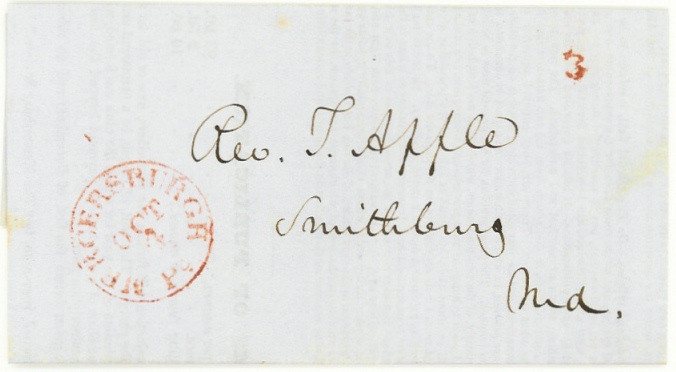 3
Rev. T. Apple
Smithburg
Md.
MERCERSBURGH Pa
OCT